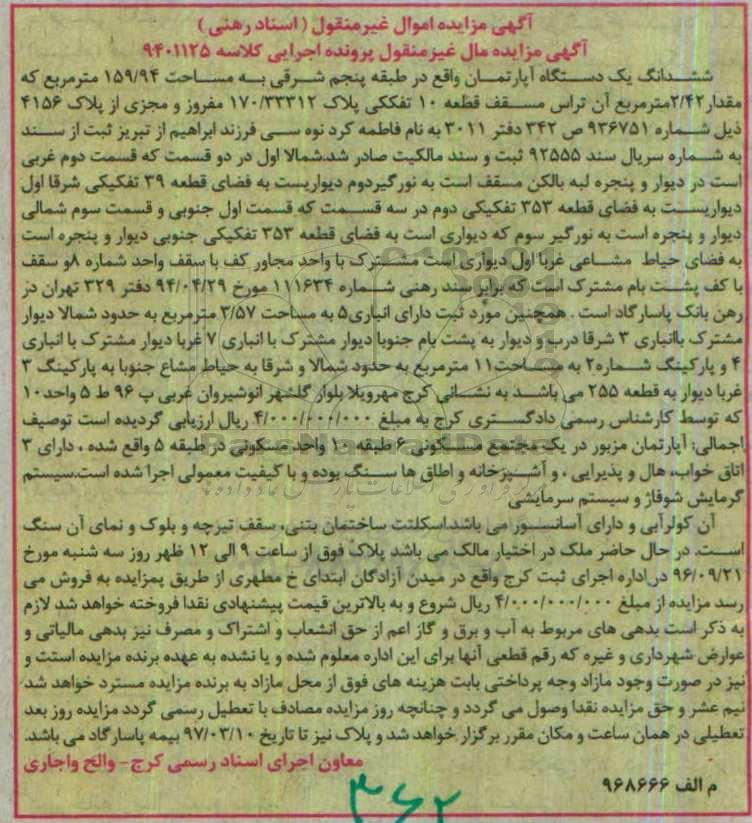 آگهی مزایده اموال غیرمنقول (اسناد رهنی)
آگهی مزایده مال غیرمنقول پرونده اجرایی کلاسه ۹۴۰۱۱۲۵
ششدانگ یک دستگاه آپارتمان واقع در طبقه پنجم شرقی به مساحت ۱۵۹/۹۴ مترمربع که
مقدار۲/۴۲مترمربع آن تراس مسقف قطعه ۱۰ تفککی پلاک ۱۷۰/۳۳۳۱۲ مفروز و مجزی از پلاک ۴۱۵۶
ذیل شماره ۹۳۶۷۵۱ ص ۳۴۲ دفتر ۳۰۱۱ به نام فاطمه کرد نوه سی فرزند ابراهیم از تبریز ثبت از سند
به شماره سریال سند ۹۲۵۵۵ ثبت و سند مالکیت صادر شد.شمالا اول در دو قسمت که قسمت دوم غربی
است در دیوار و پنجره لبه بالکن مسقف است به نورگیردوم دیواریست به فضای قطعه ۳۹ تفکیکی شرقا اول
دیواریست به فضای قطعه ۳۵۳ تفکیکی دوم در سه قسمت که قسمت اول جنوبی و قسمت سوم شمالی
دیوار و پنجره است به نورگیر سوم که دیواری است به فضای قطعه ۳۵۳ تفکیکی جنوبی دیوار و پنجره است
به فضای حیاط مشاعی غربا اول دیواری است مشترک با واحد مجاور کف با سقف واحد شماره ۸و سقف
با کف پشت بام مشترک است که برابر سند رهنی شماره ۱۱۱۶۳۴ مورخ ۹۴/۰۴/۲۹ دفتر ۳۲۹ تهران در
رهن بانک پاسارگاد است . همچنین مورد ثبت دارای انباری۵ به مساحت ۳/۵۷ مترمربع به حدود شمالا دیوار
مشترک باانباری ۳ شرقا درب و دیوار به پشت بام جنوبا دیوار مشترک با انباری ۷ غربا دیوار مشترک با انباری
۴ و پارکینگ شماره۲ به مساحت۱۱ مترمربع به حدود شمالا و شرقا به حیاط مشاع جنوبا به پارکینگ ۳
غربا دیوار به قطعه ۲۵۵ می باشد به نشانی کرج مهرویلا بلوار گلشهر انوشیروان غربی پ ۹۶ ط ۵ واحد۱۰
که توسط کارشناس رسمی دادگستری کرج به مبلغ ۴/۰۰۰/۰۰۰/۰۰۰ ریال ارزیابی گردیده است توصیف
اجمالی: آپارتمان مزبور در یک مجتمع مسکونی ۶ طبقه ۱۰ واحد مسکونی در طبقه ۵ واقع شده ، دارای ۳
اتاق خواب، هال و پذیرایی ، و آشپزخانه و اطاق ها سنگ بوده و با کیفیت معمولی اجرا شده است.سیستم
گرمایش شوفاژ و سیستم سرمایشی
آن کولرآبی و دارای آسانسور می باشد.اسکلتت ساختمان بتنی، سقف تیرچه و بلوک و نمای آن سنگ
است. در حال حاضر ملک در اختیار مالک می باشد پلاک فوق از ساعت ۹ الی ۱۲ ظهر روز سه شنبه مورخ
۹۶/۰۹/۲۱ در اداره اجرای ثبت کرج واقع در میدن آزادگان ابتدای خ مطهری از طریق پمزایده به فروش می
رسد مزایده از مبلغ ۴/۰۰۰/۰۰۰/۰۰۰ ریال شروع و به بالاترین قیمت پیشنهادی نقدا فروخته خواهد شد لازم
به ذکر است بدهی های مربوط به آب و برق و گاز اعم از حق انشعاب و اشتراک و مصرف نیز بدهی مالیاتی و
عوارض شهرداری و غیره که رقم قطعی آنها برای این اداره معلوم شده و یا نشده به عهده برنده مزایده استت و
نیز در صورت وجود مازاد وجه پرداختی بابت هزینه های فوق از محل مازاد به برنده مزایده مسترد خواهد شد
نیم عشر و حق مزایده نقدا وصول می گردد و چنانچه روز مزایده مصادف با تعطیل رسمی گردد مزایده روز بعد
تعطیلی در همان ساعت و مکان مقرر برگزار خواهد شد و پلاک نیز تا تاریخ ۹۷/۰۳/۱۰ بیمه پاسارگاد می باشد.
معاون اجرای اسناد رسمی کرج- والخ واجاری
م الف ۹۶۸۶۶۶
۳۶۲